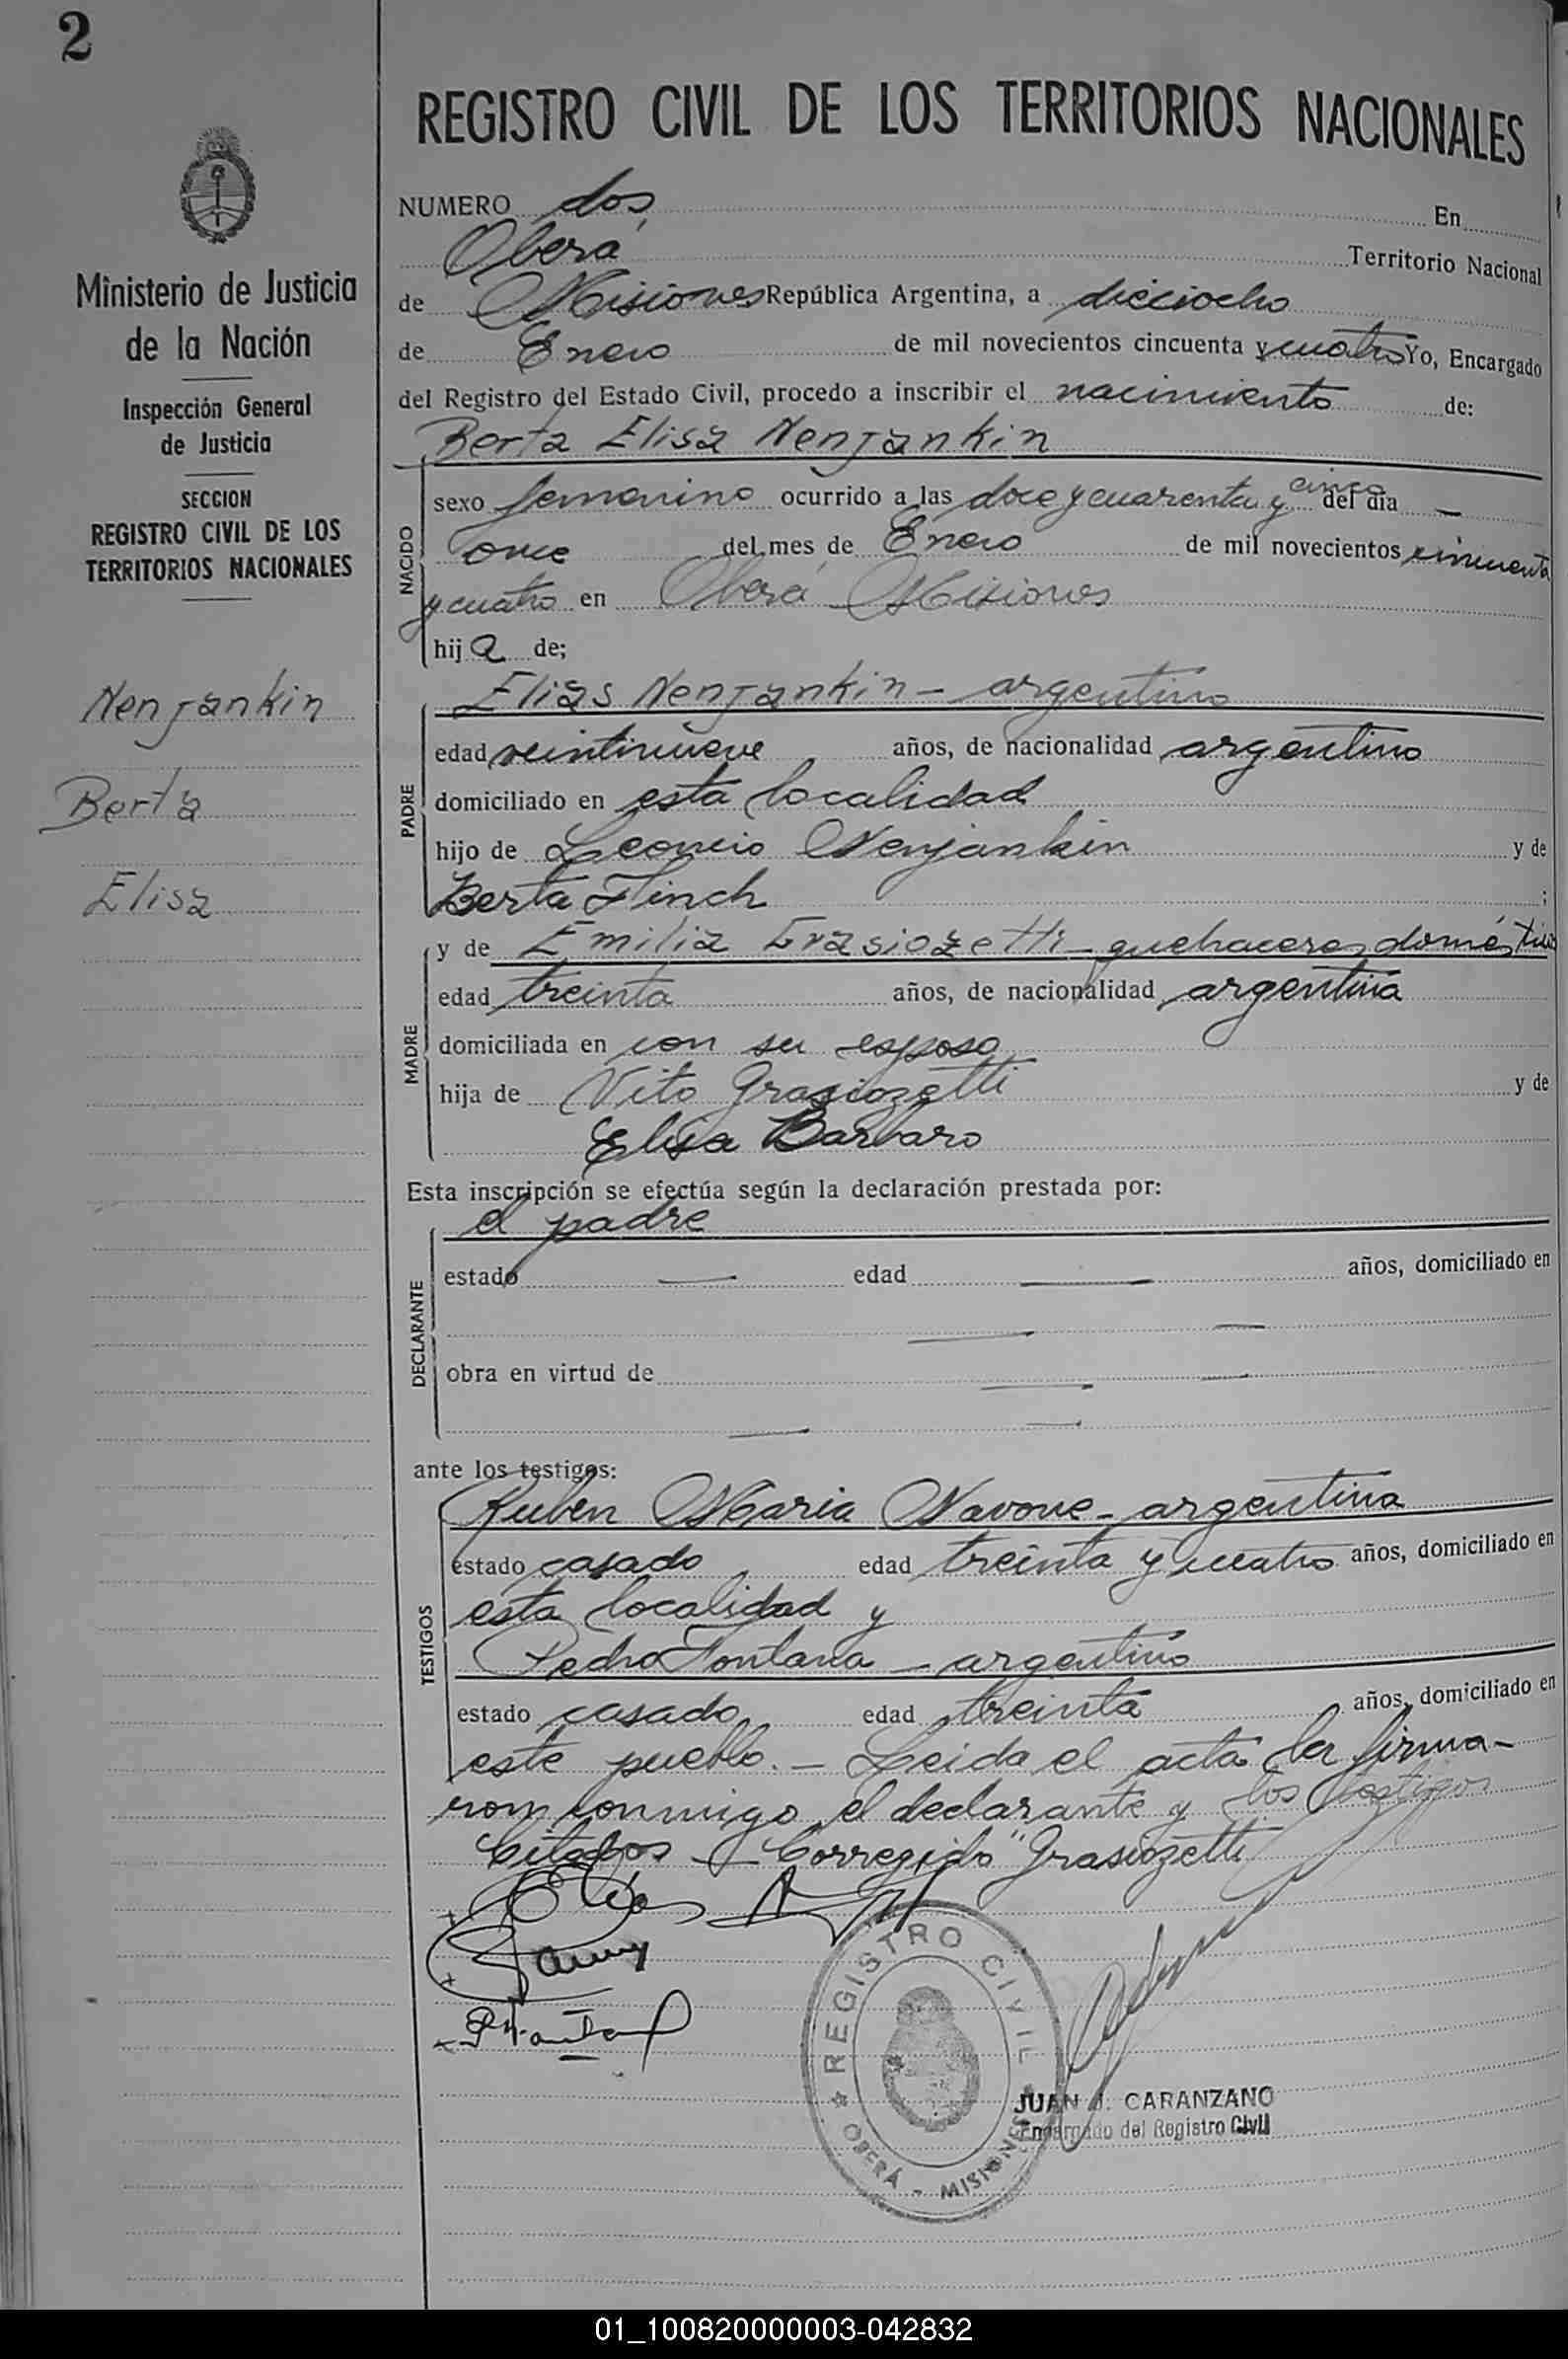 2
REGISTRO CIVIL DE LOS TERRITORIOS NACIONALES
Ministerio de Justicia
de la Nación
Inspección General
de Justicia
SECCION
REGISTRO CIVIL DE LOS
TERRITORIOS NACIONALES
Nenjankin
Berta
Elisa
NUMERO dos En
Oberá Territorio Nacional
de Misiones República Argentina, a dieciocho
de Enero de mil novecientos cincuenta y cuatro Yo, Encargado
del Registro del Estado Civil, procedo a inscribir el nacimiento de:
Berta Elisa Nenjankin
NACIDO
sexo femenino ocurrido a las doce y cuarenta y cinco del día —
once del mes de Enero de mil novecientos cincuenta
y cuatro en Oberá Misiones
hij a de;
PADRE
Elias Nenjankin - argentino
edad veintinueve años, de nacionalidad argentino
domiciliado en esta localidad
hijo de Leoncio Nenjankin y de
Berta Finch ;
MADRE
y de Emilia Grasiozetti - quehaceres domésticos
edad treinta años, de nacionalidad argentina
domiciliada en con su esposo
hija de Vito Grasiozetti y de
Elisa Barbaro
Esta inscripción se efectúa según la declaración prestada por:
DECLARANTE
el padre
estado — edad — años, domiciliado en
— —
obra en virtud de — —
— —
ante los testigos:
TESTIGOS
Ruben Maria Navone - argentina
estado casado edad treinta y cuatro años, domiciliado en
esta localidad y
Pedro Fontana - argentino
estado casado edad treinta años, domiciliado en
este pueblo. - Leida el acta la firma-
ron conmigo el declarante y los testigos
citados - Corregido "Grasiozetti
Elias
REGISTRO CIVIL
OBERÁ - MISIONES
JUAN J. CARANZANO
Encargado del Registro Civil
01_100820000003-042832